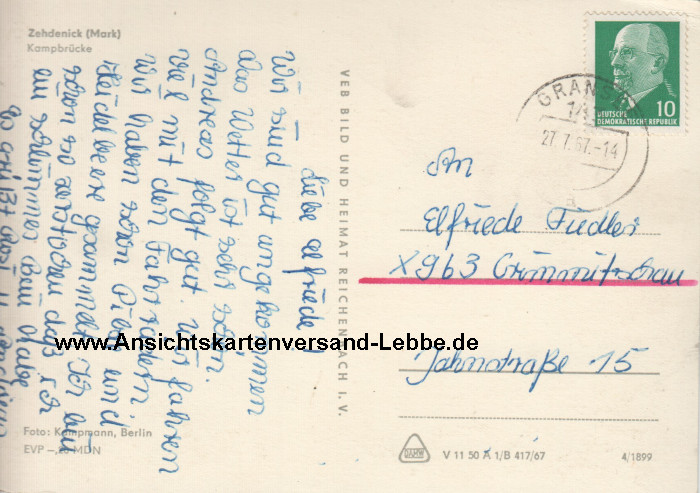 Zehdenick (Mark)
Kampbrücke
Liebe Elfriede!
Wir sind gut angekommen
das Wetter ist sehr schön.
Andreas folgt gut. Wir fahren
viel mit den Fahrrädern
Wir haben schon Pilze und
Heidelbeere gesammelt. Ich bin
schon so zerstochen daß ich
ein schlimmes Bein habe
Es grüßt
VEB BILD UND HEIMAT REICHENBACH I. V.
GRANSEE
27.7.67.-14
10
DEUTSCHE
DEMOKRATISCHE REPUBLIK
An
Elfriede Fiedler
X963 Crimmitschau
Jahnstraße 15
www.Ansichtskartenversand-Lebbe.de
Foto: Kampmann, Berlin
EVP –,20 MDN
V 11 50 A 1/B 417/67
4/1899